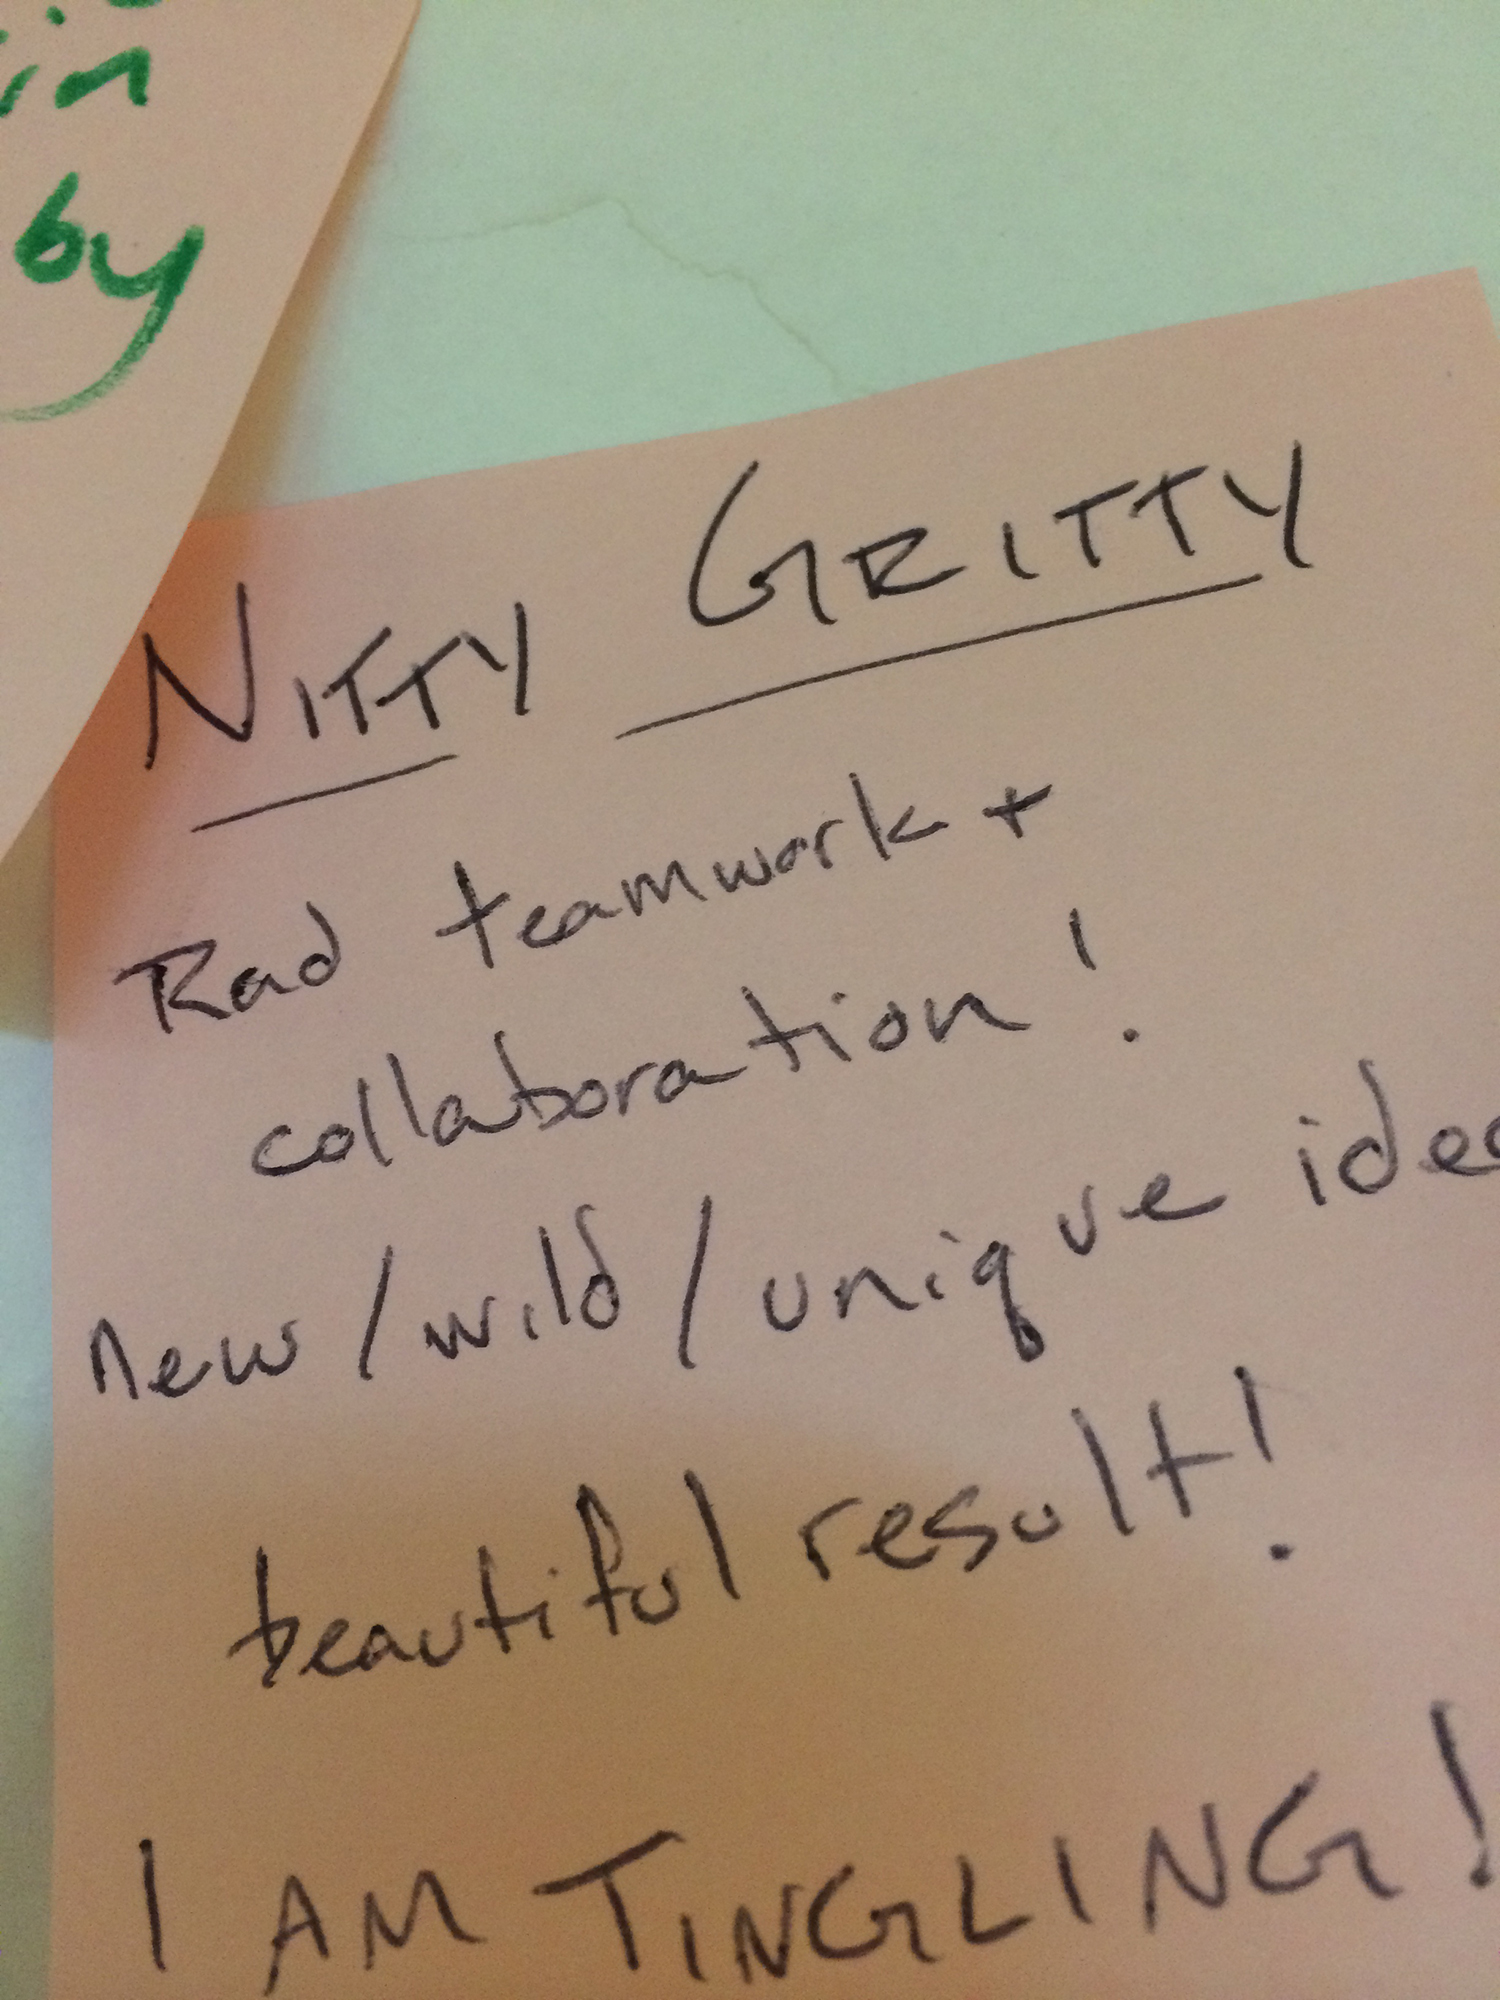 in
by
NITTY GRITTY
Rad teamwork +
collaboration!
new/wild/unique
beautiful result!
I AM TINGLING!